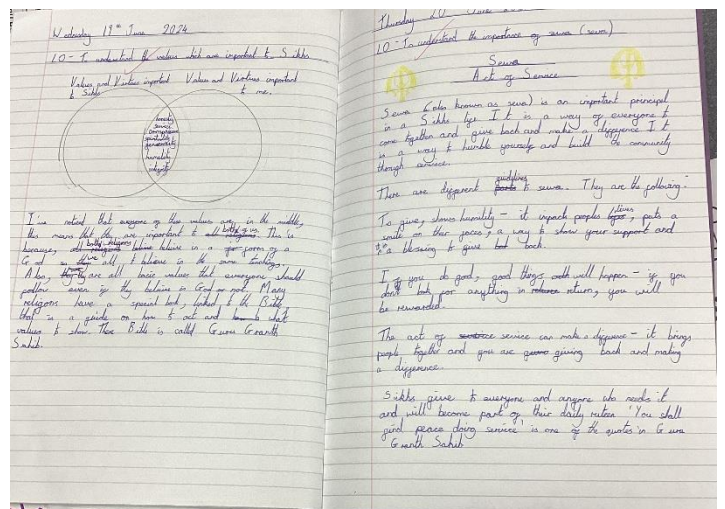 Wednesday 19th June 2024
LO - I understand the values which are important to Sikhs
Values and Virtues important
to Sikhs
Values and Virtues important
to me.
honesty
service
compassion
spirituality
generosity
humility
integrity
I've noticed that everyone of the values are in the middle,
this means that they are important to all both
This is
because, all both religions believe in a form of a
God so we all believe in the same
Also, they are all basic values that everyone should
follow even if they believe in God or not. Many
religions have a special book, linked to the Bible
that is a guide on how to act and what
values to show. There Bible is called Guru Granth
Sahib.
Thursday 20 June
LO - To understand the importance of sewa (seva)
Sewa
Act of Service
Sewa (also known as seva) is an important principal
in a Sikhs life. It is a way of everyone to
come together and give back and make a difference. It
is a way to humble yourself and build the community
through service.
There are different guidlines to sewa. They are the following:-
To give, shows humility - it impacts peoples lives, puts a
smile on their faces, a way to show your support and
it's a blessing to give back.
If you do good, good things will happen - if you
don't look for anything in return, you will
be rewarded.
The act of service can make a difference - it brings
people together and you are giving back and making
a difference.
Sikhs give to everyone and anyone who needs it
and will become part of their daily 'You shall
find peace doing service' is one of the quotes in Guru
Granth Sahib